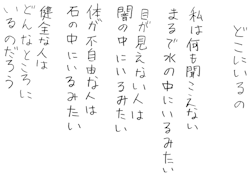 どこにいるの
私は何も聞こえない
まるで水の中にいるみたい
目が見えない人は
闇の中にいるみたい
体が不自由な人は
石の中にいるみたい
健全な人は
どんなところに
いるのだろう